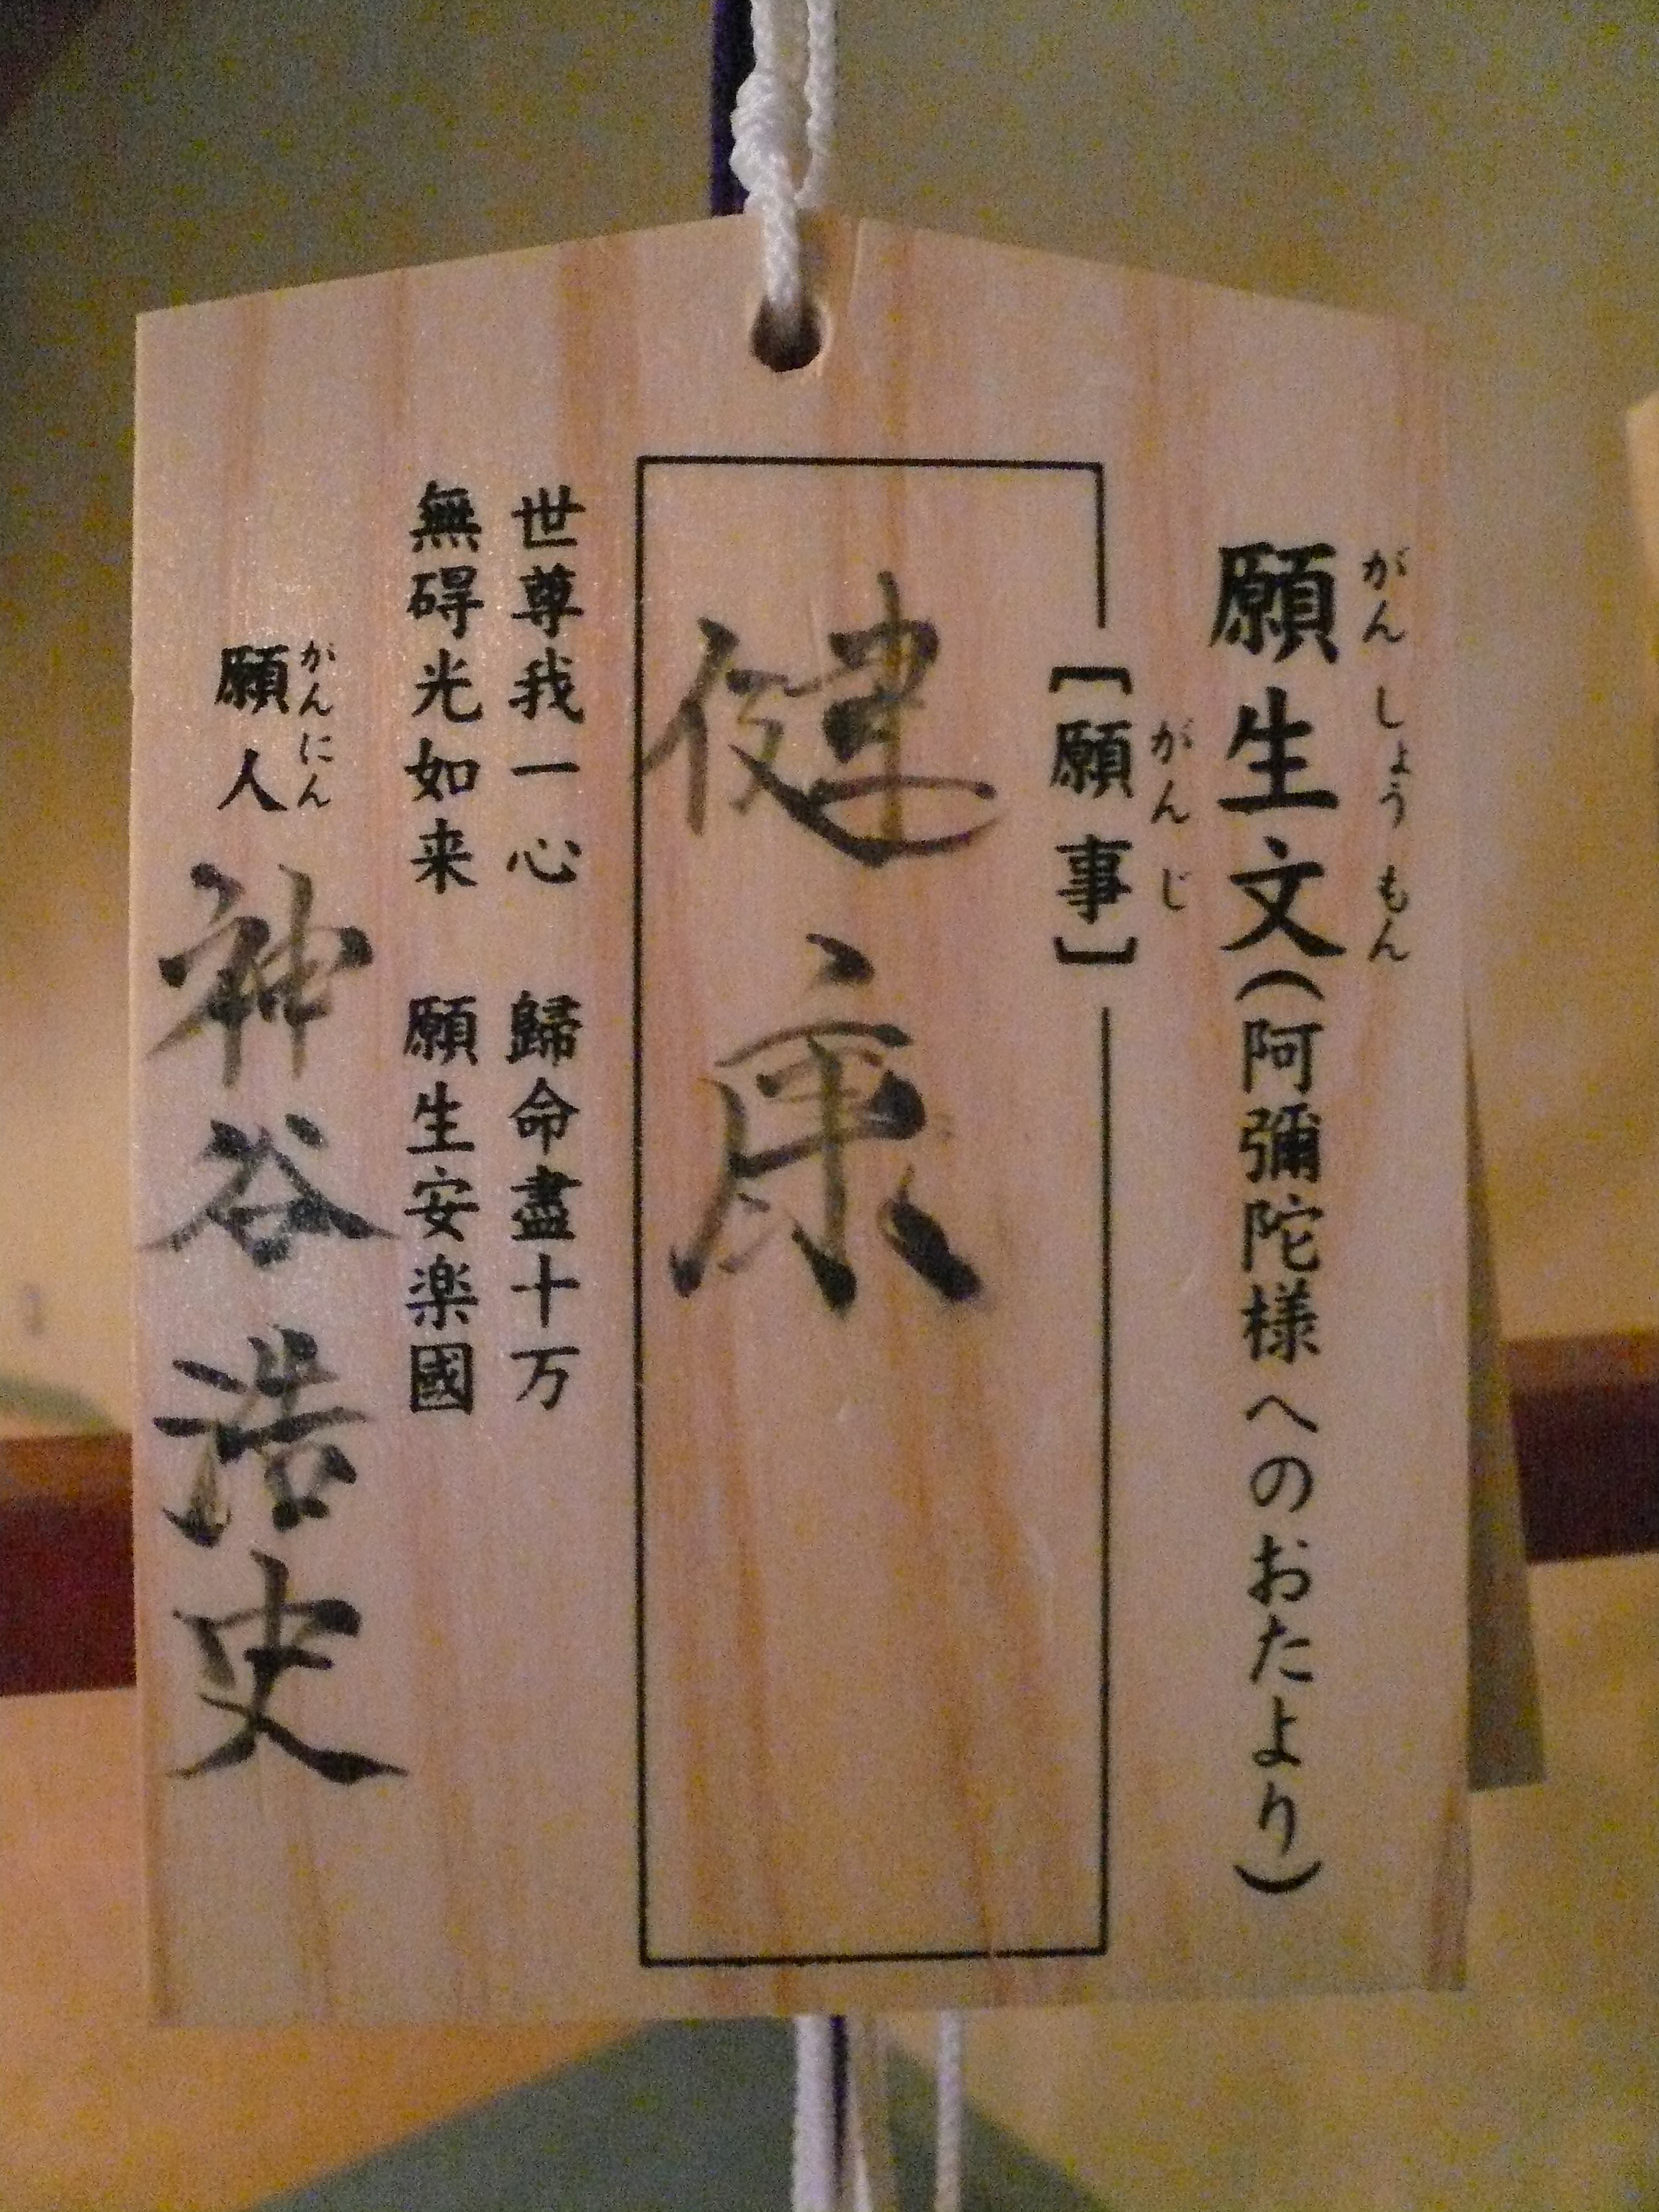 願生文(阿彌陀様へのおたより)
がんしょうもん
【願事】
がんじ
健康
世尊我一心 歸命盡十万
無碍光如来 願生安楽國
がんにん
願人 神谷浩史